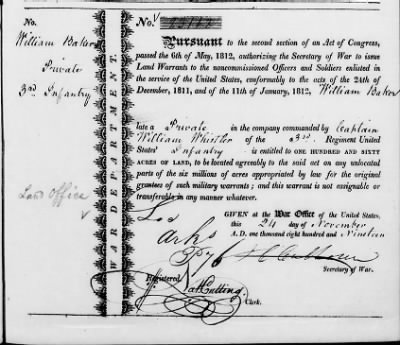 No.
William Baker
Private
3rd Infantry
Land Office
WAR DEPARTMENT.
No.
Pursuant to the second section of an Act of Congress,
passed the 6th of May, 1812, authorizing the Secretary of War to issue
Land Warrants to the noncommissioned Officers and Soldiers enlisted in
the service of the United States, conformably to the acts of the 24th of
December, 1811, and of the 11th of January, 1812, William Baker
late a Private in the company commanded by Captain
William Whistler of the 3rd Regiment United
States' Infantry is entitled to ONE HUNDRED AND SIXTY
ACRES OF LAND, to be located agreeably to the said act on any unlocated
parts of the six millions of acres appropriated by law for the original
grantees of such military warrants; and this warrant is not assignable or
transferable in any manner whatever.
GIVEN at the War Office of the United States,
this 24 day of November
A. D. one thousand eight hundred and Nineteen
J C Calhoun
Secretary of War.
Registered,
Nat Cutting
Clerk.